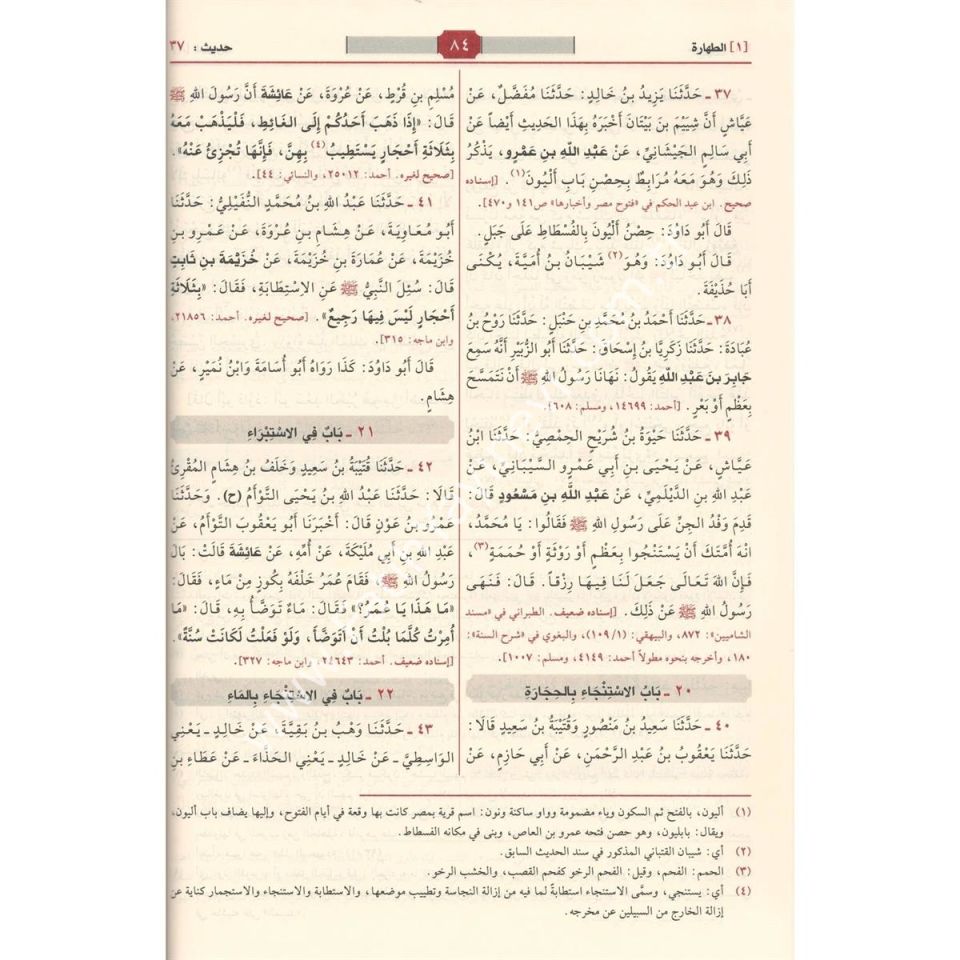 [١] الطهارة
٨٤
حديث: ٣٧
٣٧ ـ حَدَّثَنَا يَزِيدُ بنُ خَالِدٍ: حَدَّثَنَا مُفَضَّلٌ، عَنْ
عَيَّاشٍ أَنَّ شِيَيْمَ بنَ بَيْتَانَ أَخْبَرَهُ بِهَذَا الْحَدِيثِ أَيْضاً عَنْ
أَبِي سَالِمٍ الجَيْشَانِيِّ، عَنْ عَبْدِ اللَّهِ بنِ عَمْرٍو، يَذْكُرُ
ذَلِكَ وَهُوَ مَعَهُ مُرَابِطٌ بِحِصْنِ بَابِ أَلْيُونَ(١). [إسناده
صحيح. ابن عبد الحكم في «فتوح مصر وأخبارها» ص١٤١ و٤٧٠].
قَالَ أَبُو دَاوُدَ: حِصْنُ أَلْيُونَ بِالْفُسْطَاطِ عَلَى جَبَلٍ.
قَالَ أَبُو دَاوُدَ: وَهُوَ(٢) شَيْبَانُ بنُ أُمَيَّةَ، يُكْنَى
أَبَا حُذَيْفَةَ.
٣٨ ـ حَدَّثَنَا أَحْمَدُ بنُ مُحَمَّدِ بنِ حَنْبَلٍ: حَدَّثَنَا رَوْحُ بنُ
عُبَادَةَ: حَدَّثَنَا زَكَرِيَّا بنُ إِسْحَاقَ: حَدَّثَنَا أَبُو الزُّبَيْرِ أَنَّهُ سَمِعَ
جَابِرَ بنَ عَبْدِ اللَّهِ يَقُولُ: نَهَانَا رَسُولُ اللهِ ﷺ أَنْ نَتَمَسَّحَ
بِعَظْمٍ أَوْ بَعْرٍ. [أحمد: ١٤٦٩٩، ومسلم: ٦٠٨].
٣٩ ـ حَدَّثَنَا حَيْوَةُ بنُ شُرَيْحٍ الحِمْصِيُّ: حَدَّثَنَا ابْنُ
عَيَّاشٍ، عَنْ يَحْيَى بنِ أَبِي عَمْرٍو السَّيْبَانِيِّ، عَنْ
عَبْدِ اللهِ بنِ الدَّيْلَمِيِّ، عَنْ عَبْدِ اللَّهِ بنِ مَسْعُودٍ قَالَ:
قَدِمَ وَفْدُ الجِنِّ عَلَى رَسُولِ اللهِ ﷺ فَقَالُوا: يَا مُحَمَّدُ،
انْهَ أُمَّتَكَ أَنْ يَسْتَنْجُوا بِعَظْمٍ أَوْ رَوْثَةٍ أَوْ حُمَمَةٍ(٣)،
فَإِنَّ اللهَ تَعَالَى جَعَلَ لَنَا فِيهَا رِزْقاً. قَالَ: فَنَهَى
رَسُولُ اللهِ ﷺ عَنْ ذَلِكَ. [إسناده ضعيف. الطبراني في «مسند
الشاميين»: ٨٧٢، والبيهقي: (١/١٠٩)، والبغوي في «شرح السنة»:
١٨٠، وأخرجه بنحوه مطولاً أحمد: ٤١٤٩، ومسلم: ١٠٠٧].
٢٠ ـ بَابُ الِاسْتِنْجَاءِ بِالحِجَارَةِ
٤٠ ـ حَدَّثَنَا سَعِيدُ بنُ مَنْصُورٍ وَقُتَيْبَةُ بنُ سَعِيدٍ قَالَا:
حَدَّثَنَا يَعْقُوبُ بنُ عَبْدِ الرَّحْمَنِ، عَنْ أَبِي حَازِمٍ، عَنْ
مُسْلِمِ بنِ قُرْطٍ، عَنْ عُرْوَةَ، عَنْ عَائِشَةَ أَنَّ رَسُولَ اللهِ ﷺ
قَالَ: «إِذَا ذَهَبَ أَحَدُكُمْ إِلَى الغَائِطِ، فَلْيَذْهَبْ مَعَهُ
بِثَلَاثَةِ أَحْجَارٍ يَسْتَطِيبُ(٤) بِهِنَّ، فَإِنَّهَا تُجْزِئُ عَنْهُ».
[صحيح لغيره. أحمد: ٢٥٠١٢، والنسائي: ٤٤].
٤١ ـ حَدَّثَنَا عَبْدُ اللهِ بنُ مُحَمَّدٍ النُّفَيْلِيُّ: حَدَّثَنَا
أَبُو مُعَاوِيَةَ، عَنْ هِشَامِ بنِ عُرْوَةَ، عَنْ عَمْرِو بنِ
خُزَيْمَةَ، عَنْ عُمَارَةَ بنِ خُزَيْمَةَ، عَنْ خُزَيْمَةَ بنِ ثَابِتٍ
قَالَ: سُئِلَ النَّبِيُّ ﷺ عَنِ الِاسْتِطَابَةِ، فَقَالَ: «بِثَلَاثَةِ
أَحْجَارٍ لَيْسَ فِيهَا رَجِيعٌ». [صحيح لغيره. أحمد: ٢١٨٥٦،
وابن ماجه: ٣١٥].
قَالَ أَبُو دَاوُدَ: كَذَا رَوَاهُ أَبُو أُسَامَةَ وَابْنُ نُمَيْرٍ، عَنْ
هِشَامٍ.
٢١ ـ بَابٌ فِي الِاسْتِبْرَاءِ
٤٢ ـ حَدَّثَنَا قُتَيْبَةُ بنُ سَعِيدٍ وَخَلَفُ بنُ هِشَامٍ المُقْرِئُ
قَالَا: حَدَّثَنَا عَبْدُ اللهِ بنُ يَحْيَى التَّوْأَمُ (ح). وَحَدَّثَنَا
عَمْرُو بنُ عَوْنٍ قَالَ: أَخْبَرَنَا أَبُو يَعْقُوبَ التَّوْأَمُ، عَنْ
عَبْدِ اللهِ بنِ أَبِي مُلَيْكَةَ، عَنْ أُمِّهِ، عَنْ عَائِشَةَ قَالَتْ: بَالَ
رَسُولُ اللهِ ﷺ، فَقَامَ عُمَرُ خَلْفَهُ بِكُوزٍ مِنْ مَاءٍ، فَقَالَ:
«مَا هَذَا يَا عُمَرُ؟» فَقَالَ: مَاءٌ تَوَضَّأُ بِهِ، قَالَ: «مَا
أُمِرْتُ كُلَّمَا بُلْتُ أَنْ أَتَوَضَّأَ، وَلَوْ فَعَلْتُ لَكَانَتْ سُنَّةً».
[إسناده ضعيف. أحمد: ٢٤٦٤٣، وابن ماجه: ٣٢٧].
٢٢ ـ بَابٌ فِي الِاسْتِنْجَاءِ بِالمَاءِ
٤٣ ـ حَدَّثَنَا وَهْبُ بنُ بَقِيَّةَ، عَنْ خَالِدٍ ـ يَعْنِي
الوَاسِطِيَّ ـ عَنْ خَالِدٍ ـ يَعْنِي الحَذَّاءَ ـ عَنْ عَطَاءِ بنِ
(١) أليون، بالفتح ثم السكون وياء مضمومة وواو ساكنة ونون: اسم قرية بمصر كانت بها وقعة في أيام الفتوح، وإليها يضاف باب أليون،
ويقال: بابليون، وهو حصن فتحه عمرو بن العاص، وبنى في مكانه الفسطاط.
(٢) أي: شيبان القتباني المذكور في سند الحديث السابق.
(٣) الحمم: الفحم، وقيل: الفحم الرخو كفحم القصب، والخشب الرخو.
(٤) أي: يستنجي، وسمَّى الاستنجاء استطابةً لما فيه من إزالة النجاسة وتطييب موضعها، والاستطابة والاستنجاء والاستجمار كناية عن
إزالة الخارج من السبيلين عن مخرجه.